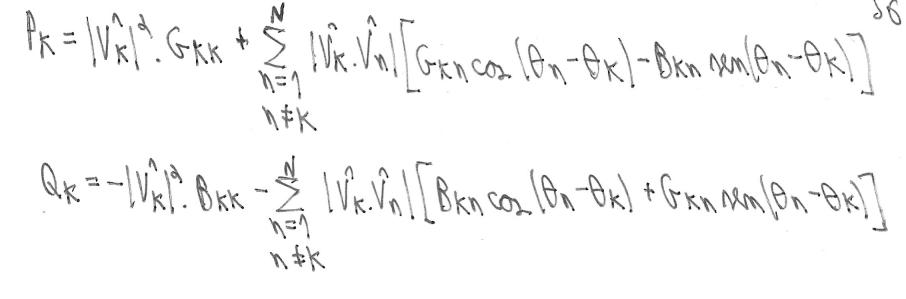 36
P_K = |V̂_K|². G_KK + Σ_{n=1, n≠K}^{N} |V̂_K.V̂_n| [G_Kn cos(θ_n-θ_K) - B_Kn sen(θ_n-θ_K)]
Q_K = -|V̂_K|². B_KK - Σ_{n=1, n≠K}^{N} |V̂_K.V̂_n| [B_Kn cos(θ_n-θ_K) + G_Kn sen(θ_n-θ_K)]